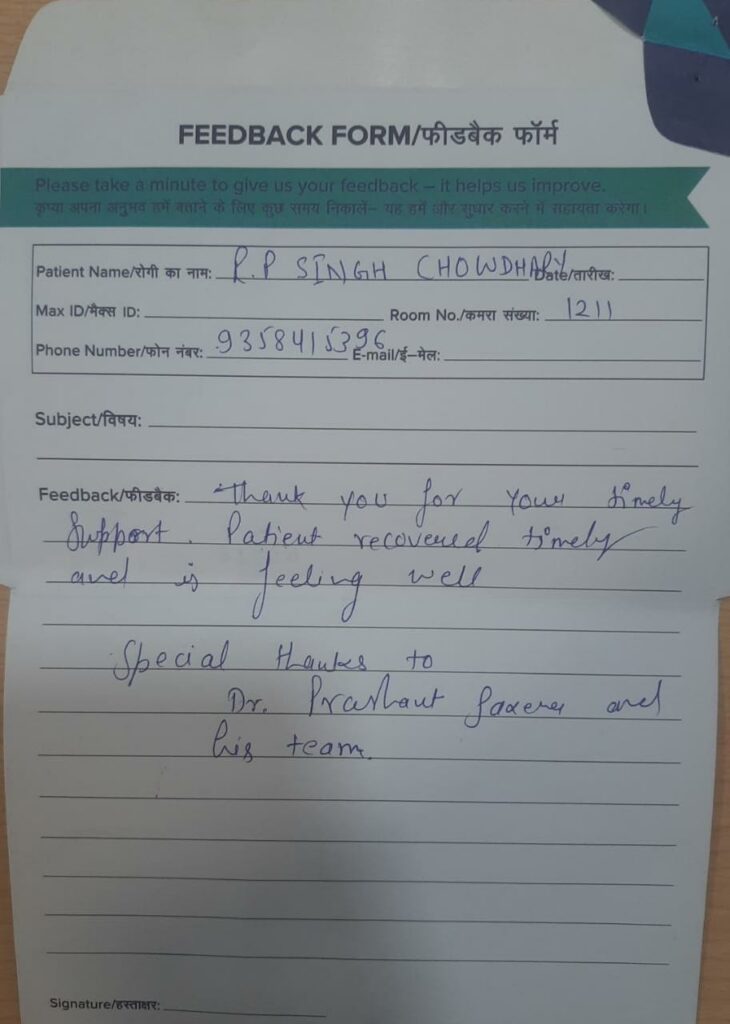 FEEDBACK FORM/फीडबैक फॉर्म
Please take a minute to give us your feedback – it helps us improve.
कृप्या अपना अनुभव हमें बताने के लिए कुछ समय निकालें– यह हमें और सुधार करने में सहायता करेगा।
Patient Name/रोगी का नाम: R.P SINGH CHOWDHARY Date/तारीख:
Max ID/मैक्स ID: Room No./कमरा संख्या: 1211
Phone Number/फोन नंबर: 9358415396 E-mail/ई–मेल:
Subject/विषय:
Feedback/फीडबैक: Thank you for your timely
support. Patient recovered timely
and is feeling well
Special thanks to
Dr. Prashant Saxena and
his team.
Signature/हस्ताक्षर: